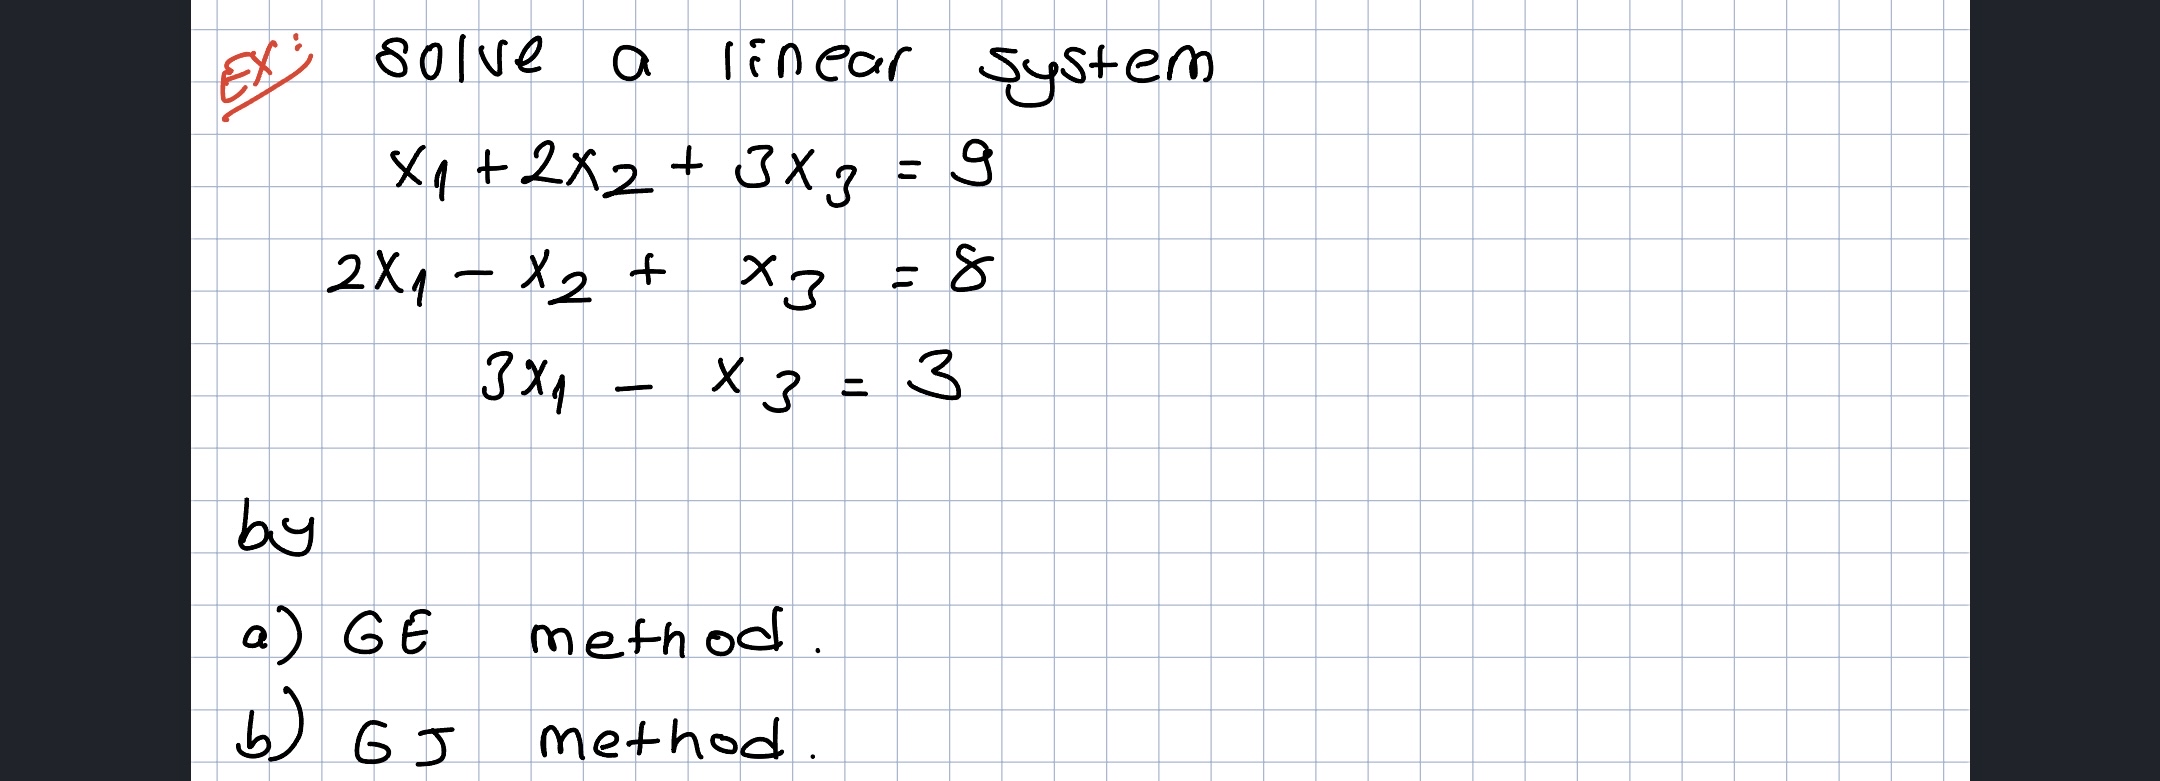 Ex: solve a linear system
x₁ + 2x₂ + 3x₃ = 9
2x₁ - x₂ + x₃ = 8
3x₁ - x₃ = 3
by
a) GE method.
b) GJ method.